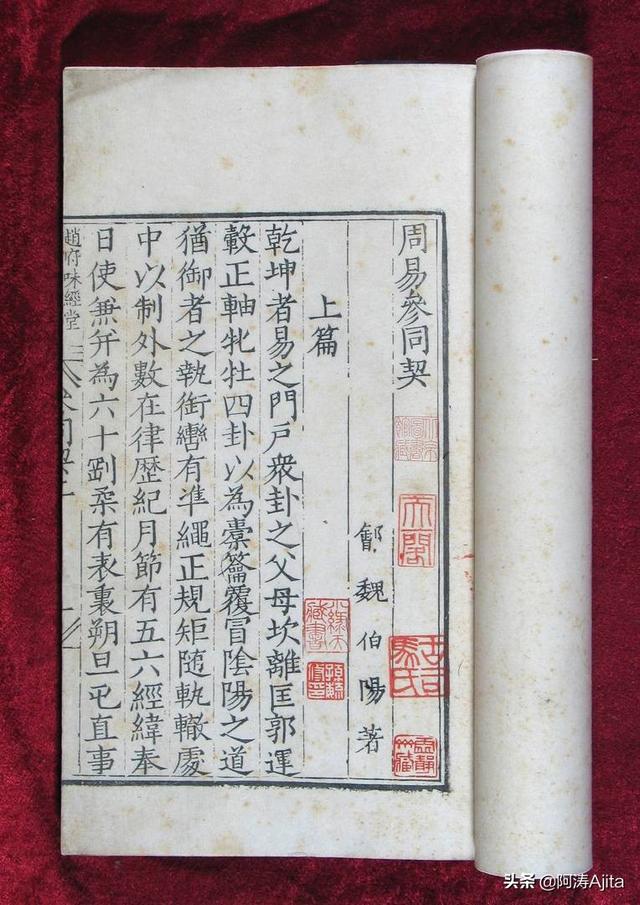 周易參同契
鄶魏伯陽著
上篇
乾坤者易之門戶衆卦之父母坎離匡郭運
轂正軸牝牡四卦以為橐籥覆冒陰陽之道
猶御者之執銜轡有准繩正規矩隨軌轍處
中以制外數在律歷紀月節有五六經緯奉
日使兼并為六十剛柔有表裏朔旦屯直事
趙府味經堂
头条 @阿涛Ajita